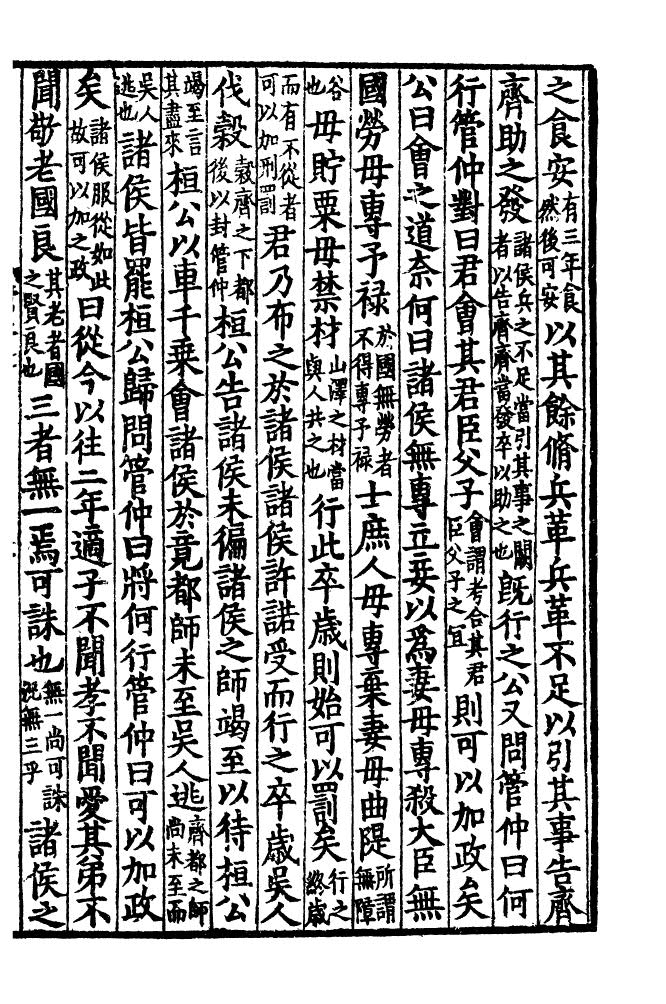 之食安有三年食然後可安以其餘脩兵革兵革不足以引其事告齊
齊助之發諸侯兵之不足當引其事之闕者以告齊齊當發卒以助之也既行之公又問管仲曰何
行管仲對曰君會其君臣父子會謂考合其君臣父子之宜則可以加政矣
公曰會之道奈何曰諸侯無專立妾以爲妻毋專殺大臣無
國勞毋專予祿於國無勞者不得專予祿士庶人毋專棄妻毋曲隄所謂無障
谷也毋貯粟毋禁材山澤之材當與人共之也行此卒歲則始可以罰矣行之終歲
而有不從者可以加刑罰君乃布之於諸侯諸侯許諾受而行之卒歲吳人
伐穀穀齊之下都後以封管仲桓公告諸侯未徧諸侯之師竭至以待桓公
竭至言其盡來桓公以車千乘會諸侯於竟都師未至吳人逃齊都之師尚未至而
吳人逃也諸侯皆罷桓公歸問管仲曰將何行管仲曰可以加政
矣諸侯服從如此故可以加之政曰從今以往二年適子不聞孝不聞愛其弟不
聞敬老國良其老者國之賢良也三者無一焉可誅也無一尚可誅況無三乎諸侯之